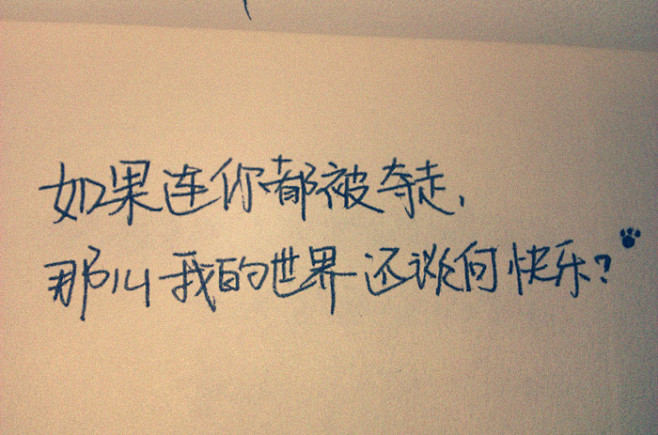 如果连你都被夺走,
那叫我的世界还谈何快乐?